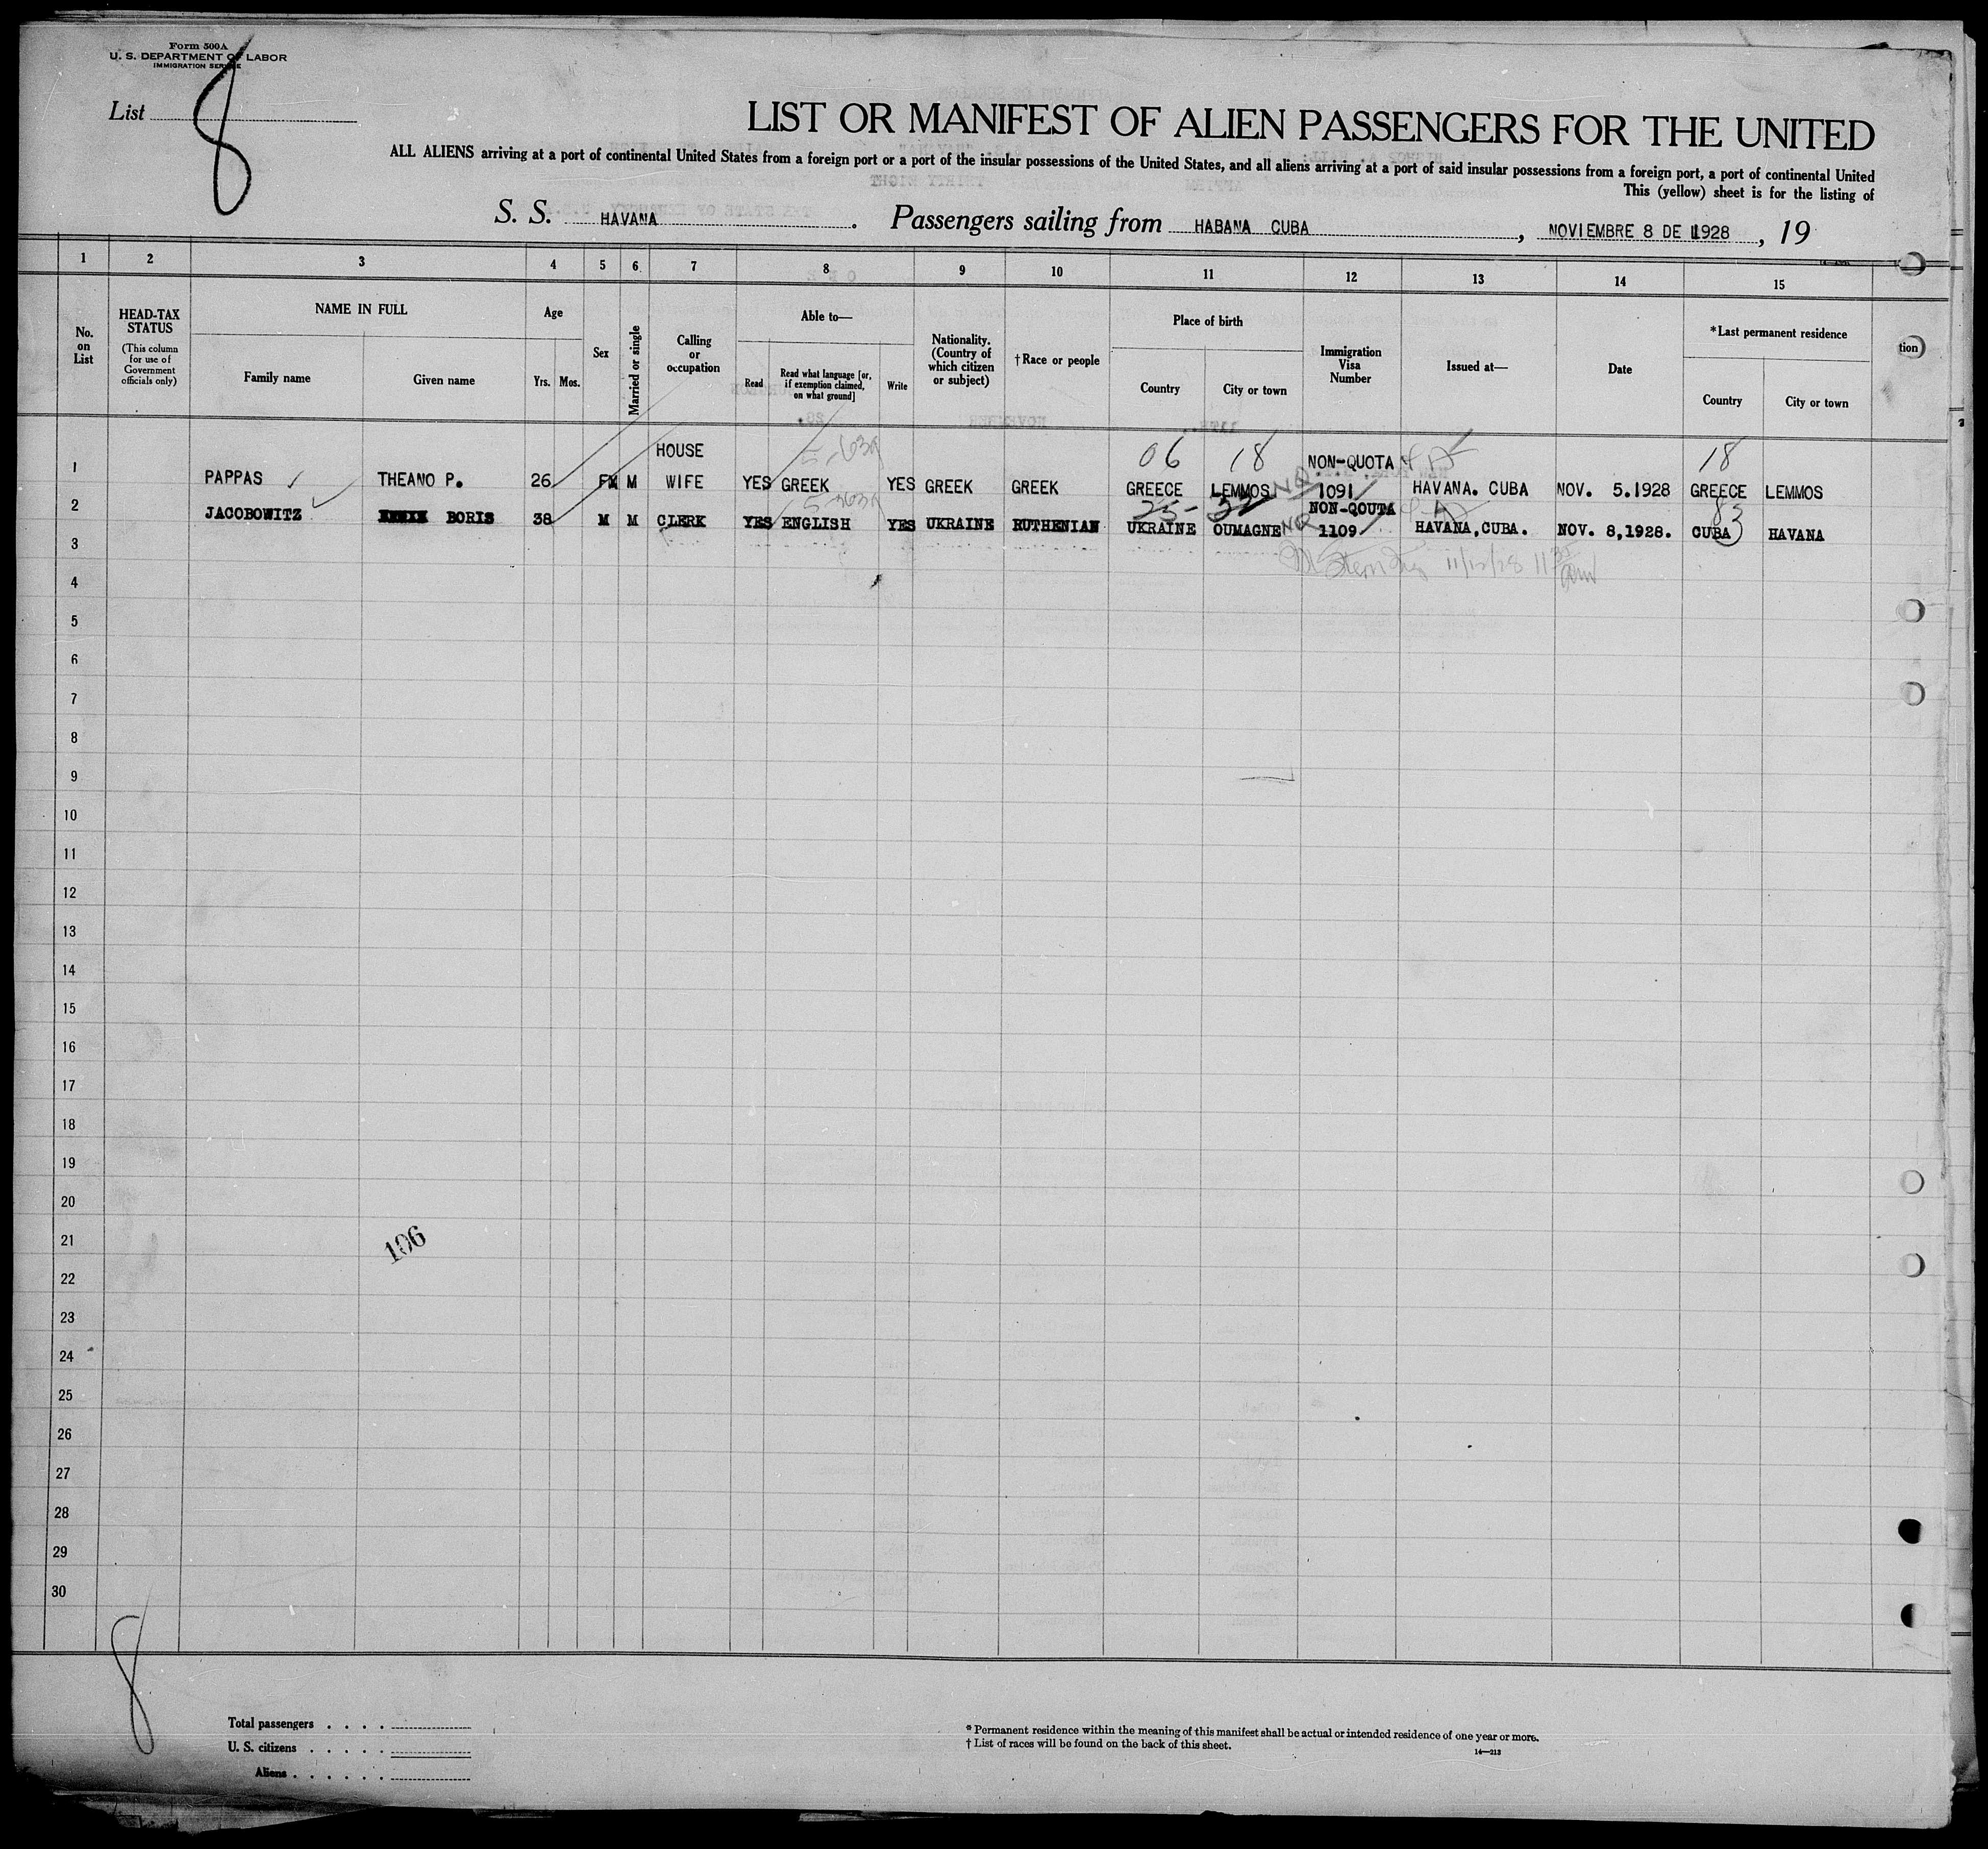 Form 500A
U. S. DEPARTMENT OF LABOR
IMMIGRATION SERVICE
List 8
LIST OR MANIFEST OF ALIEN PASSENGERS FOR THE UNITED
ALL ALIENS arriving at a port of continental United States from a foreign port or a port of the insular possessions of the United States, and all aliens arriving at a port of said insular possessions from a foreign port, a port of continental United
This (yellow) sheet is for the listing of
S. S. HAVANA. Passengers sailing from HABANA CUBA, NOVIEMBRE 8 DE 1928, 19
1 2 3 4 5 6 7 8 9 10 11 12 13 14 15
No. on List
HEAD-TAX STATUS
(This column for use of Government officials only)
NAME IN FULL
Family name
Given name
Age
Yrs. Mos.
Sex
Married or single
Calling or occupation
Able to—
Read
Read what language [or, if exemption claimed, on what ground]
Write
Nationality. (Country of which citizen or subject)
†Race or people
Place of birth
Country
City or town
Immigration Visa Number
Issued at—
Date
*Last permanent residence
Country
City or town
tion
06 18 18
1 PAPPAS THEANO P. 26 F M HOUSE WIFE YES GREEK YES GREEK GREEK GREECE LEMMOS NQ NON-QUOTA 1091 HAVANA. CUBA NOV. 5.1928 GREECE LEMMOS
25 32 83
2 JACOBOWITZ BORIS 38 M M CLERK YES ENGLISH YES UKRAINE RUTHENIAN UKRAINE OUMAGNE NQ NON-QOUTA 1109 HAVANA,CUBA. NOV. 8,1928. CUBA HAVANA
3
11/12/28 11
4
5
6
7
8
9
10
11
12
13
14
15
16
17
18
19
20
21
106
22
23
24
25
26
27
28
29
30
8
Total passengers . . . .
U. S. citizens . . . . .
Aliens . . . . . .
* Permanent residence within the meaning of this manifest shall be actual or intended residence of one year or more.
† List of races will be found on the back of this sheet.
14—213